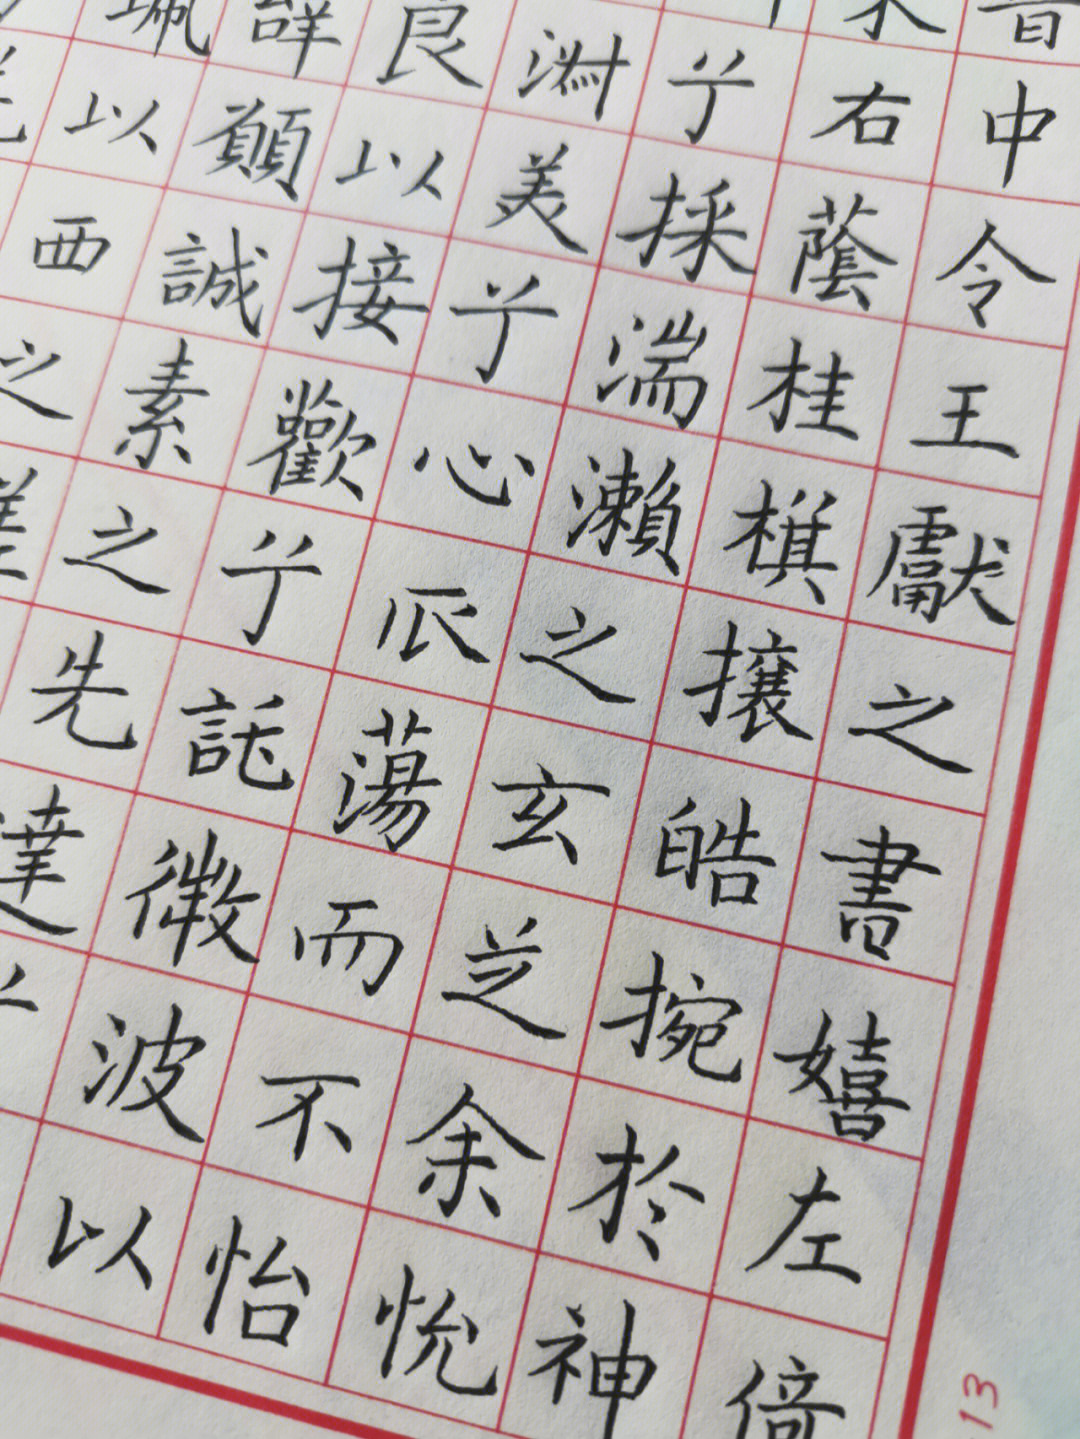 晉中令王獻之書嬉左倚
右蔭桂棋攘皓捥於神
兮採湍瀨之玄芝余悦
淑美兮心𠂢蕩而不怡
良以接歡兮託微波以
願誠素之先達
珮以西之